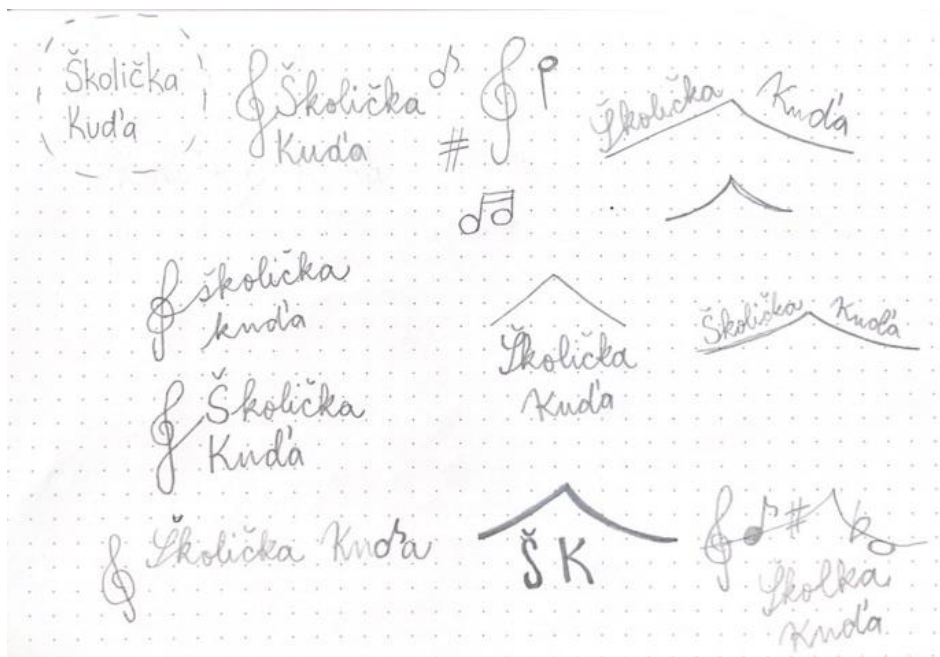 Školička
Kuďa
Školička
Kuďa
Školička Kuďa
školička
kuďa
Školička
Kuďa
Školička Kuďa
Školička
Kuďa
Školička Kuďa
ŠK
Školka
Kuďa